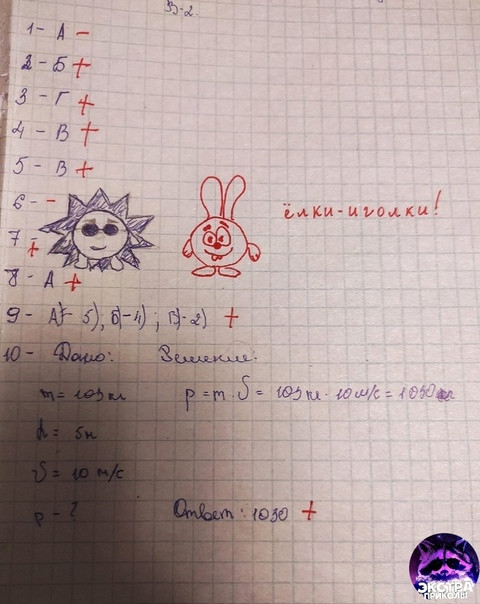 В-2.
1 - А -
2 - Б +
3 - Г +
4 - В +
5 - В +
6 - -
ёлки-иголки!
7 - +
8 - А +
9 - А)- 5), Б)-4) ; В)-2) +
10 - Дано: Решение:
m = 103 кг p = m · υ = 103 кг · 10 м/с = 1030
h = 5м
υ = 10 м/с
p - ? Ответ: 1030 +
ЭКСТРА
ПРИКОЛЫ